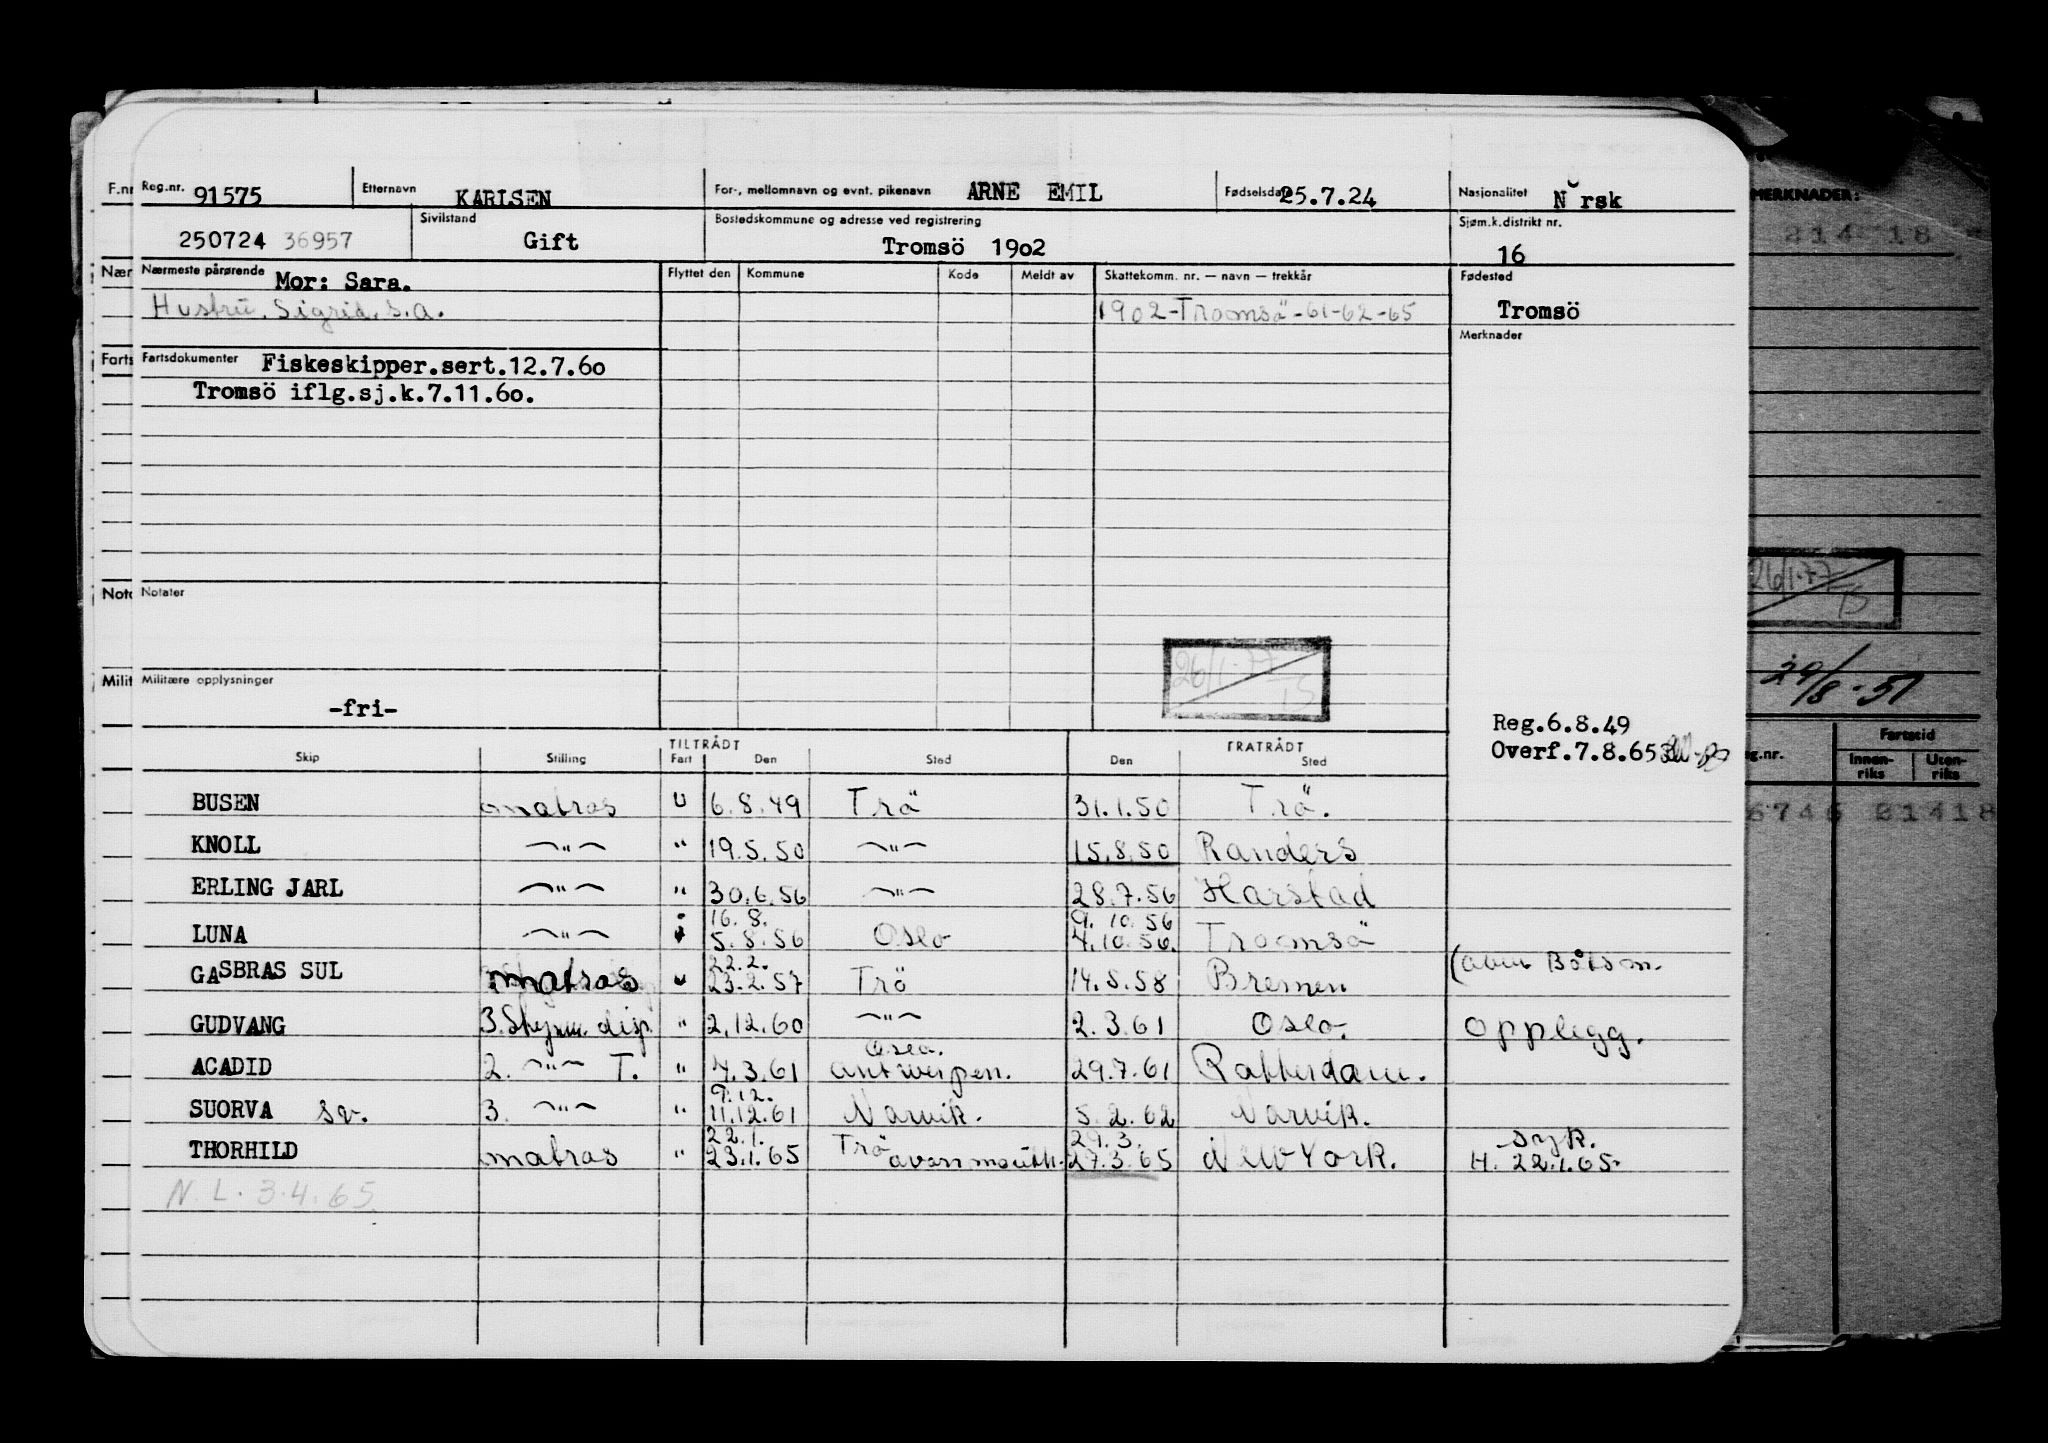 F.nr Reg.nr. 91575 Etternavn KARLSEN For-, mellomnavn og evnt. pikenavn ARNE EMIL Fødselsdato 25.7.24 Nasjonalitet Norsk MERKNADER:
250724 36957 Sivilstand Gift Bostedskommune og adresse ved registrering Tromsö 1902 Sjøm.k.distrikt nr. 16 21418
Nær Nærmeste pårørende Mor: Sara. Flyttet den Kommune Kode Meldt av Skattekomm. nr. — navn — trekkår Fødested
Hustru, Sigrid, S.A. 1902-Tromsö-61-62-65 Tromsö
Merknader
Farts Fartsdokumenter Fiskeskipper.sert.12.7.60
Tromsö iflg.sj.k.7.11.60.
Nota Notater
26/1-77 26/1-77
Milit Militære opplysninger
-fri- 29/8-51
Reg.6.8.49
Overf.7.8.65
TILTRÅDT FRATRÅDT
Skip Stilling Fart Den Sted Den Sted g.nr. Fartstid Innenriks Utenriks
BUSEN matros U 6.8.49 Trö 31.1.50 Trö. 6746 21418
KNOLL —"— " 19.5.50 —"— 15.8.50 Randers
ERLING JARL —"— " 30.6.56 —"— 28.7.56 Harstad
16.8. 9.10.56
LUNA —"— 5.8.56 Oslo 4.10.56. Tromsö
22.2.
GASBRAS SUL matros U 23.2.57 Trö 14.5.58 Bremen Båtsm.
GUDVANG 3. Styrm. disp. " 2.12.60 —"— 2.3.61 Oslo. opplegg.
Oslo.
ACADID 2. —"— T. " 4.3.61 Antwerpen. 29.7.61 Rotterdam.
9.12.
SUORVA sv. 3. —"— " 11.12.61 Narvik. 5.2.62 Narvik.
22.1. Trö 29.3. syk.
THORHILD matros " 23.1.65 Avonmouth. 27.3.65 New York. H. 22.1.65.
N.L. 3.4.65